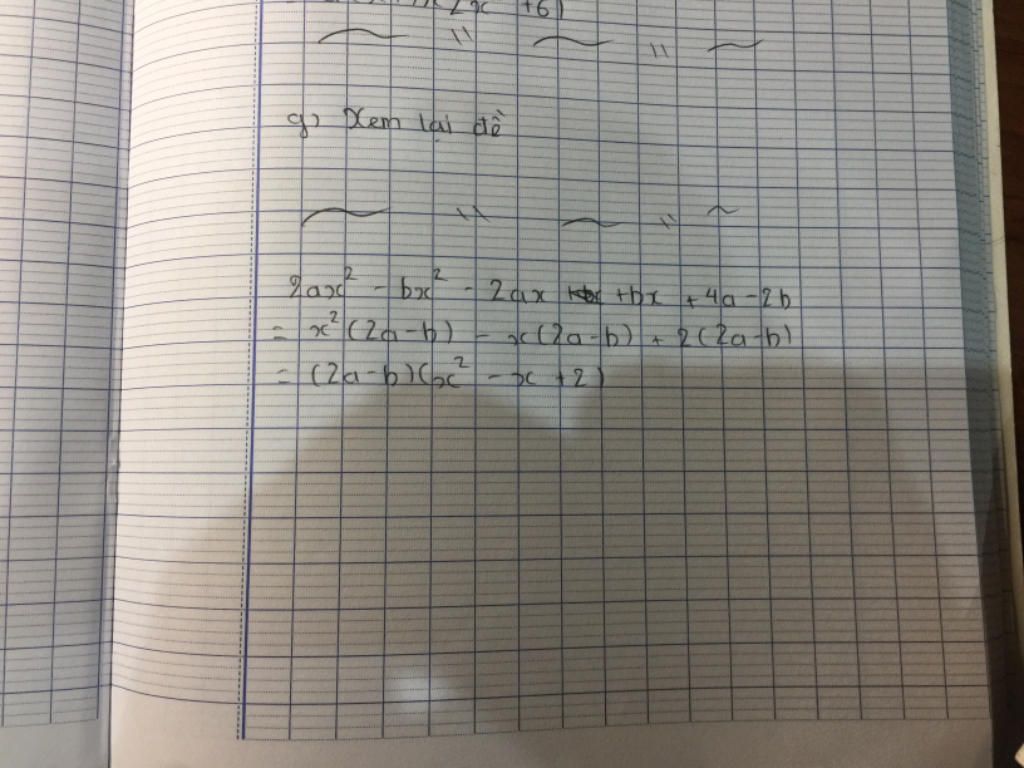 +6)
g) Xem lại đề
2ax² - bx² - 2ax +bx +4a-2b
= x²(2a-b) - x(2a-b) + 2(2a-b)
= (2a-b)(x² - x +2)